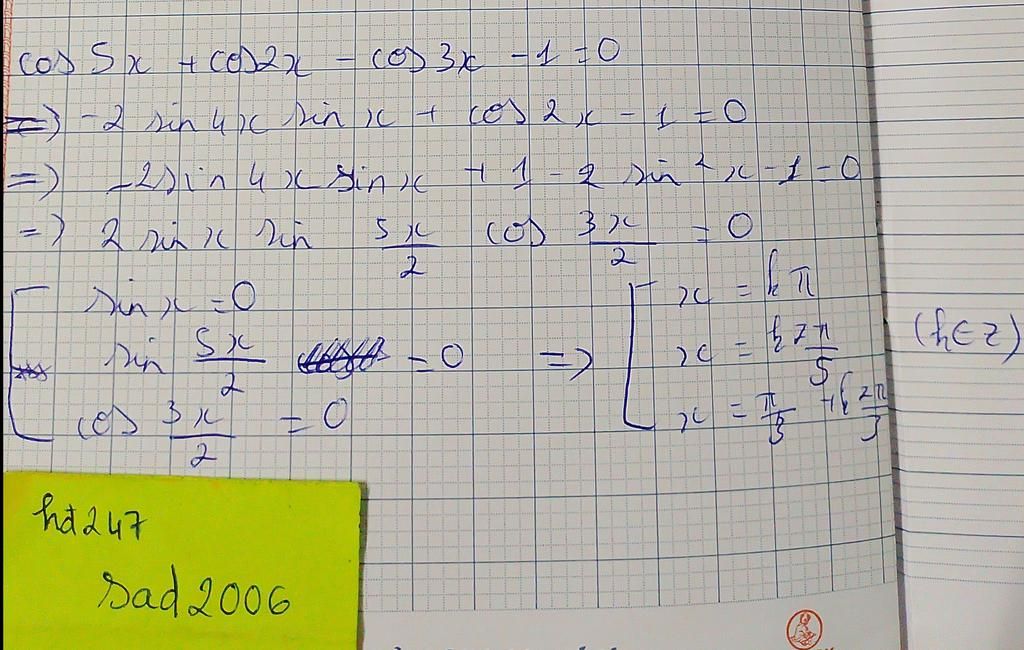 cos 5x + cos2x - cos 3x - 1 = 0
=> -2 sin 4x sin x + cos 2x - 1 = 0
=> -2sin 4x sin x + 1 - 2 sin² x - 1 = 0
=> 2 sin x sin 5x/2 cos 3x/2 = 0
[ sin x = 0
sin 5x/2 = 0
cos 3x/2 = 0
=> [ x = kπ
x = k2π/5
x = π/3 + k2π/3
(k∈Z)
hd247
sad2006